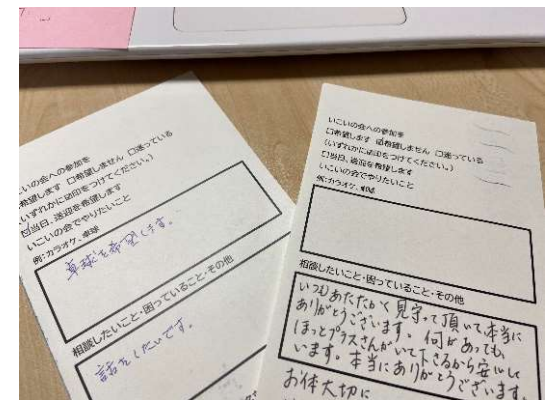 いこいの会への参加を
希望します □希望しません □迷っている
(いずれかに☑印をつけてください。)
☑当日、送迎を希望します
いこいの会でやりたいこと
例:カラオケ、卓球
卓球を希望します。
相談したいこと・困っていること・その他
話をしたいです。
いこいの会への参加を
□希望します ☑希望しません □迷っている
(いずれかに☑印をつけてください。)
□当日、送迎を希望します
いこいの会でやりたいこと
例:カラオケ、卓球
相談したいこと・困っていること・その他
いつもあたたかく見守って頂いて本当に
ありがとうございます。何があっても、
ほっとプラスさんがいて下さるから安心して
います。本当にありがとうございます。
お体大切に